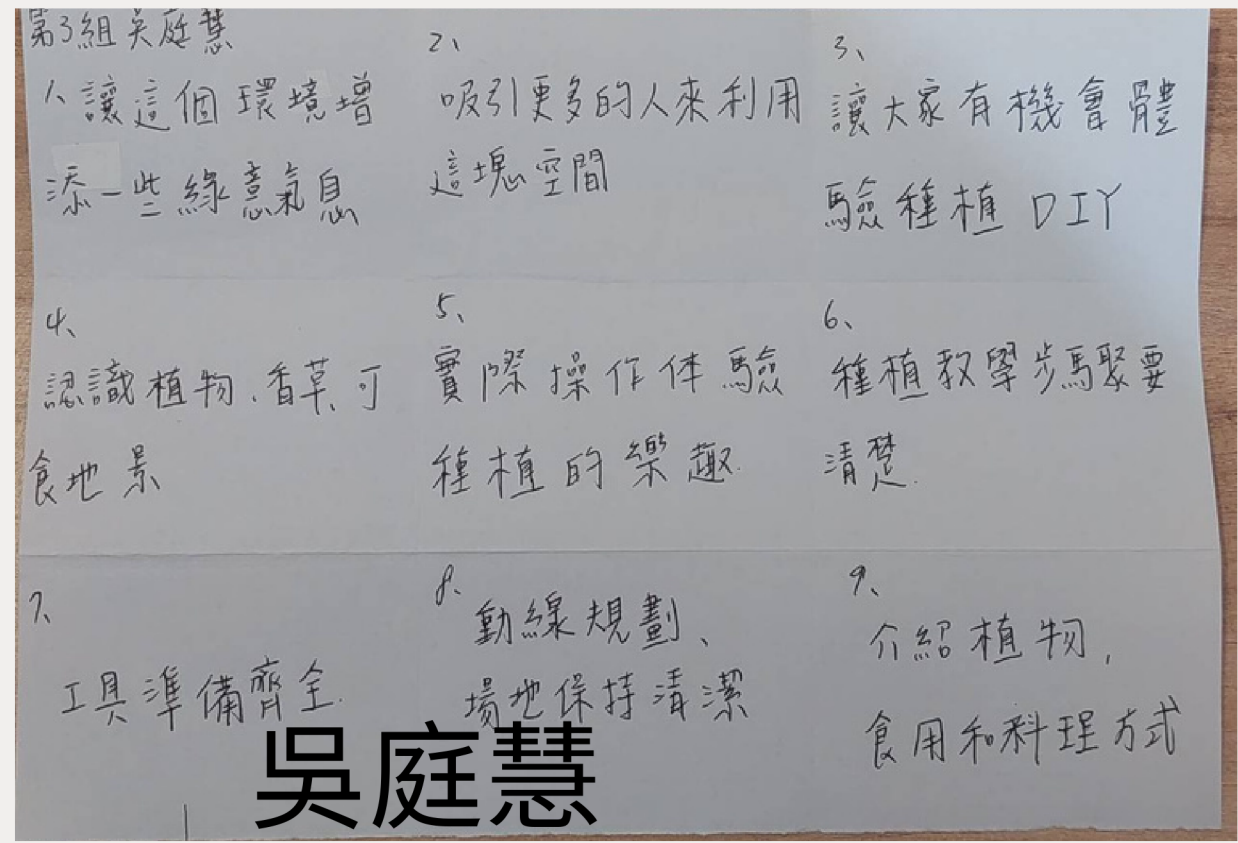 第3組吳庭慧
1、讓這個環境增
添一些綠意氣息
2、
吸引更多的人來利用
這塊空間
3、
讓大家有機會體
驗種植DIY
4、
認識植物、香草、可
食地景
5、
實際操作体驗
種植的樂趣.
6、
種植教學步驟要
清楚.
7、
工具準備齊全.
8、
動線規劃、
場地保持清潔
9、
介紹植物,
食用和料理方式
吳庭慧